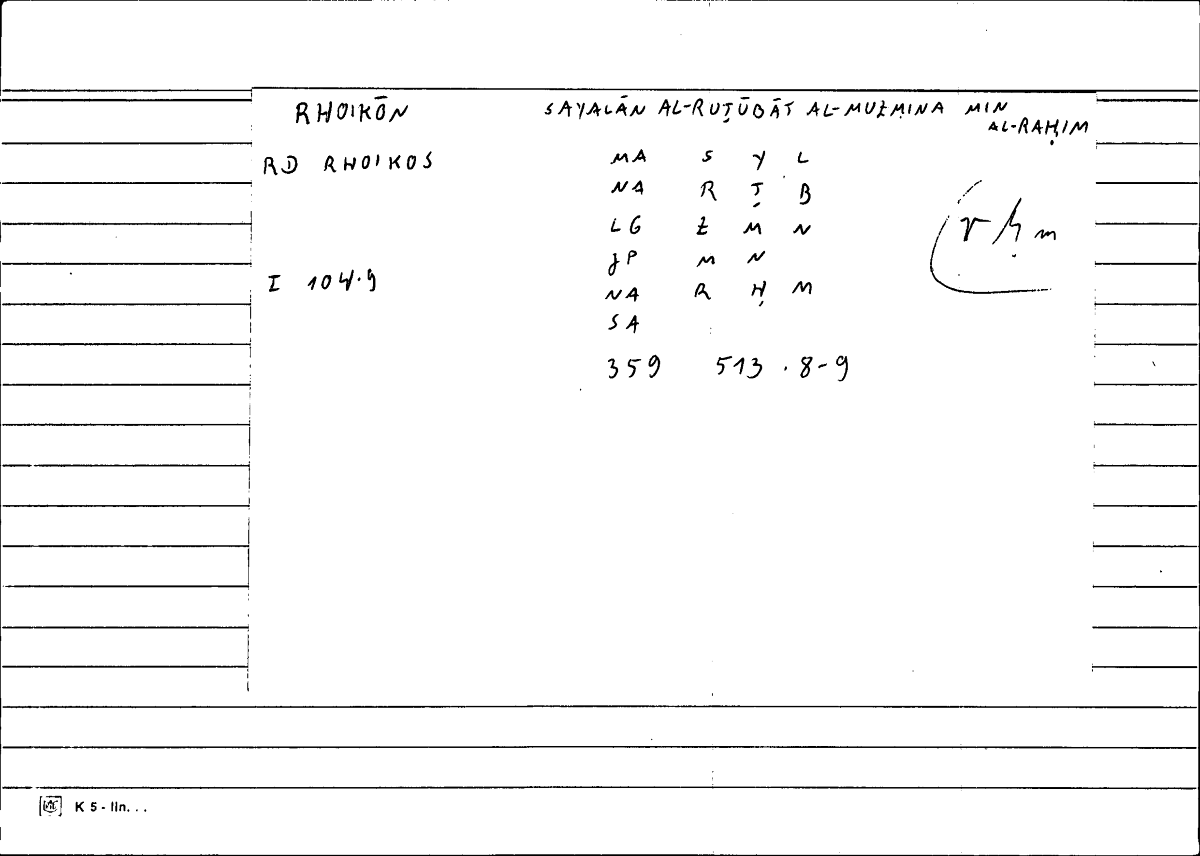 RHOIKŌN SAYALĀN AL-RUṬŪBĀT AL-MUŻMINA MIN
AL-RAḤIM
RD RHOIKOS MA S Y L
NA R Ṭ B
LG Ż M N
rḥm
JP M N
I 104.9 NA R Ḥ M
SA
359 513.8-9
K 5 - lin. . .